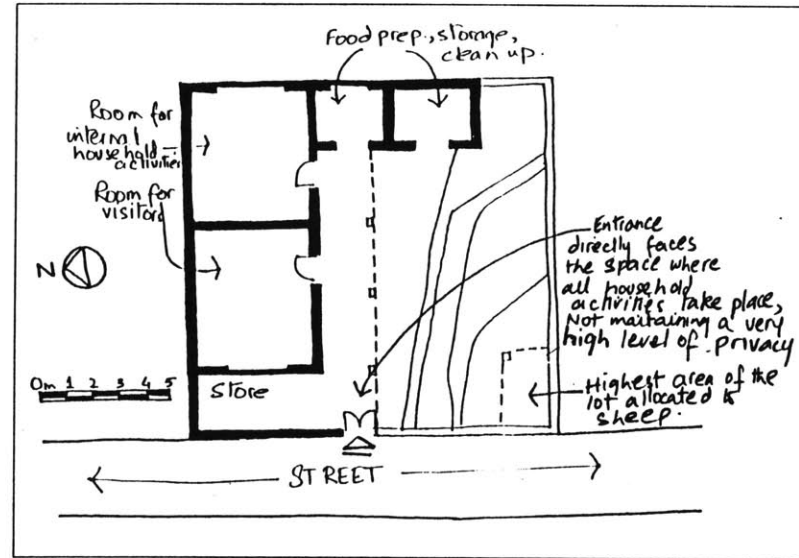 Food prep., storage,
clean up.
Room for
internal
household
activities
Room for
visitors
N
Entrance
directly faces
the space where
all household
activities take place,
Not maintaining a very
high level of privacy
0m 1 2 3 4 5
Store
Highest area of the
lot allocated to
sheep.
STREET